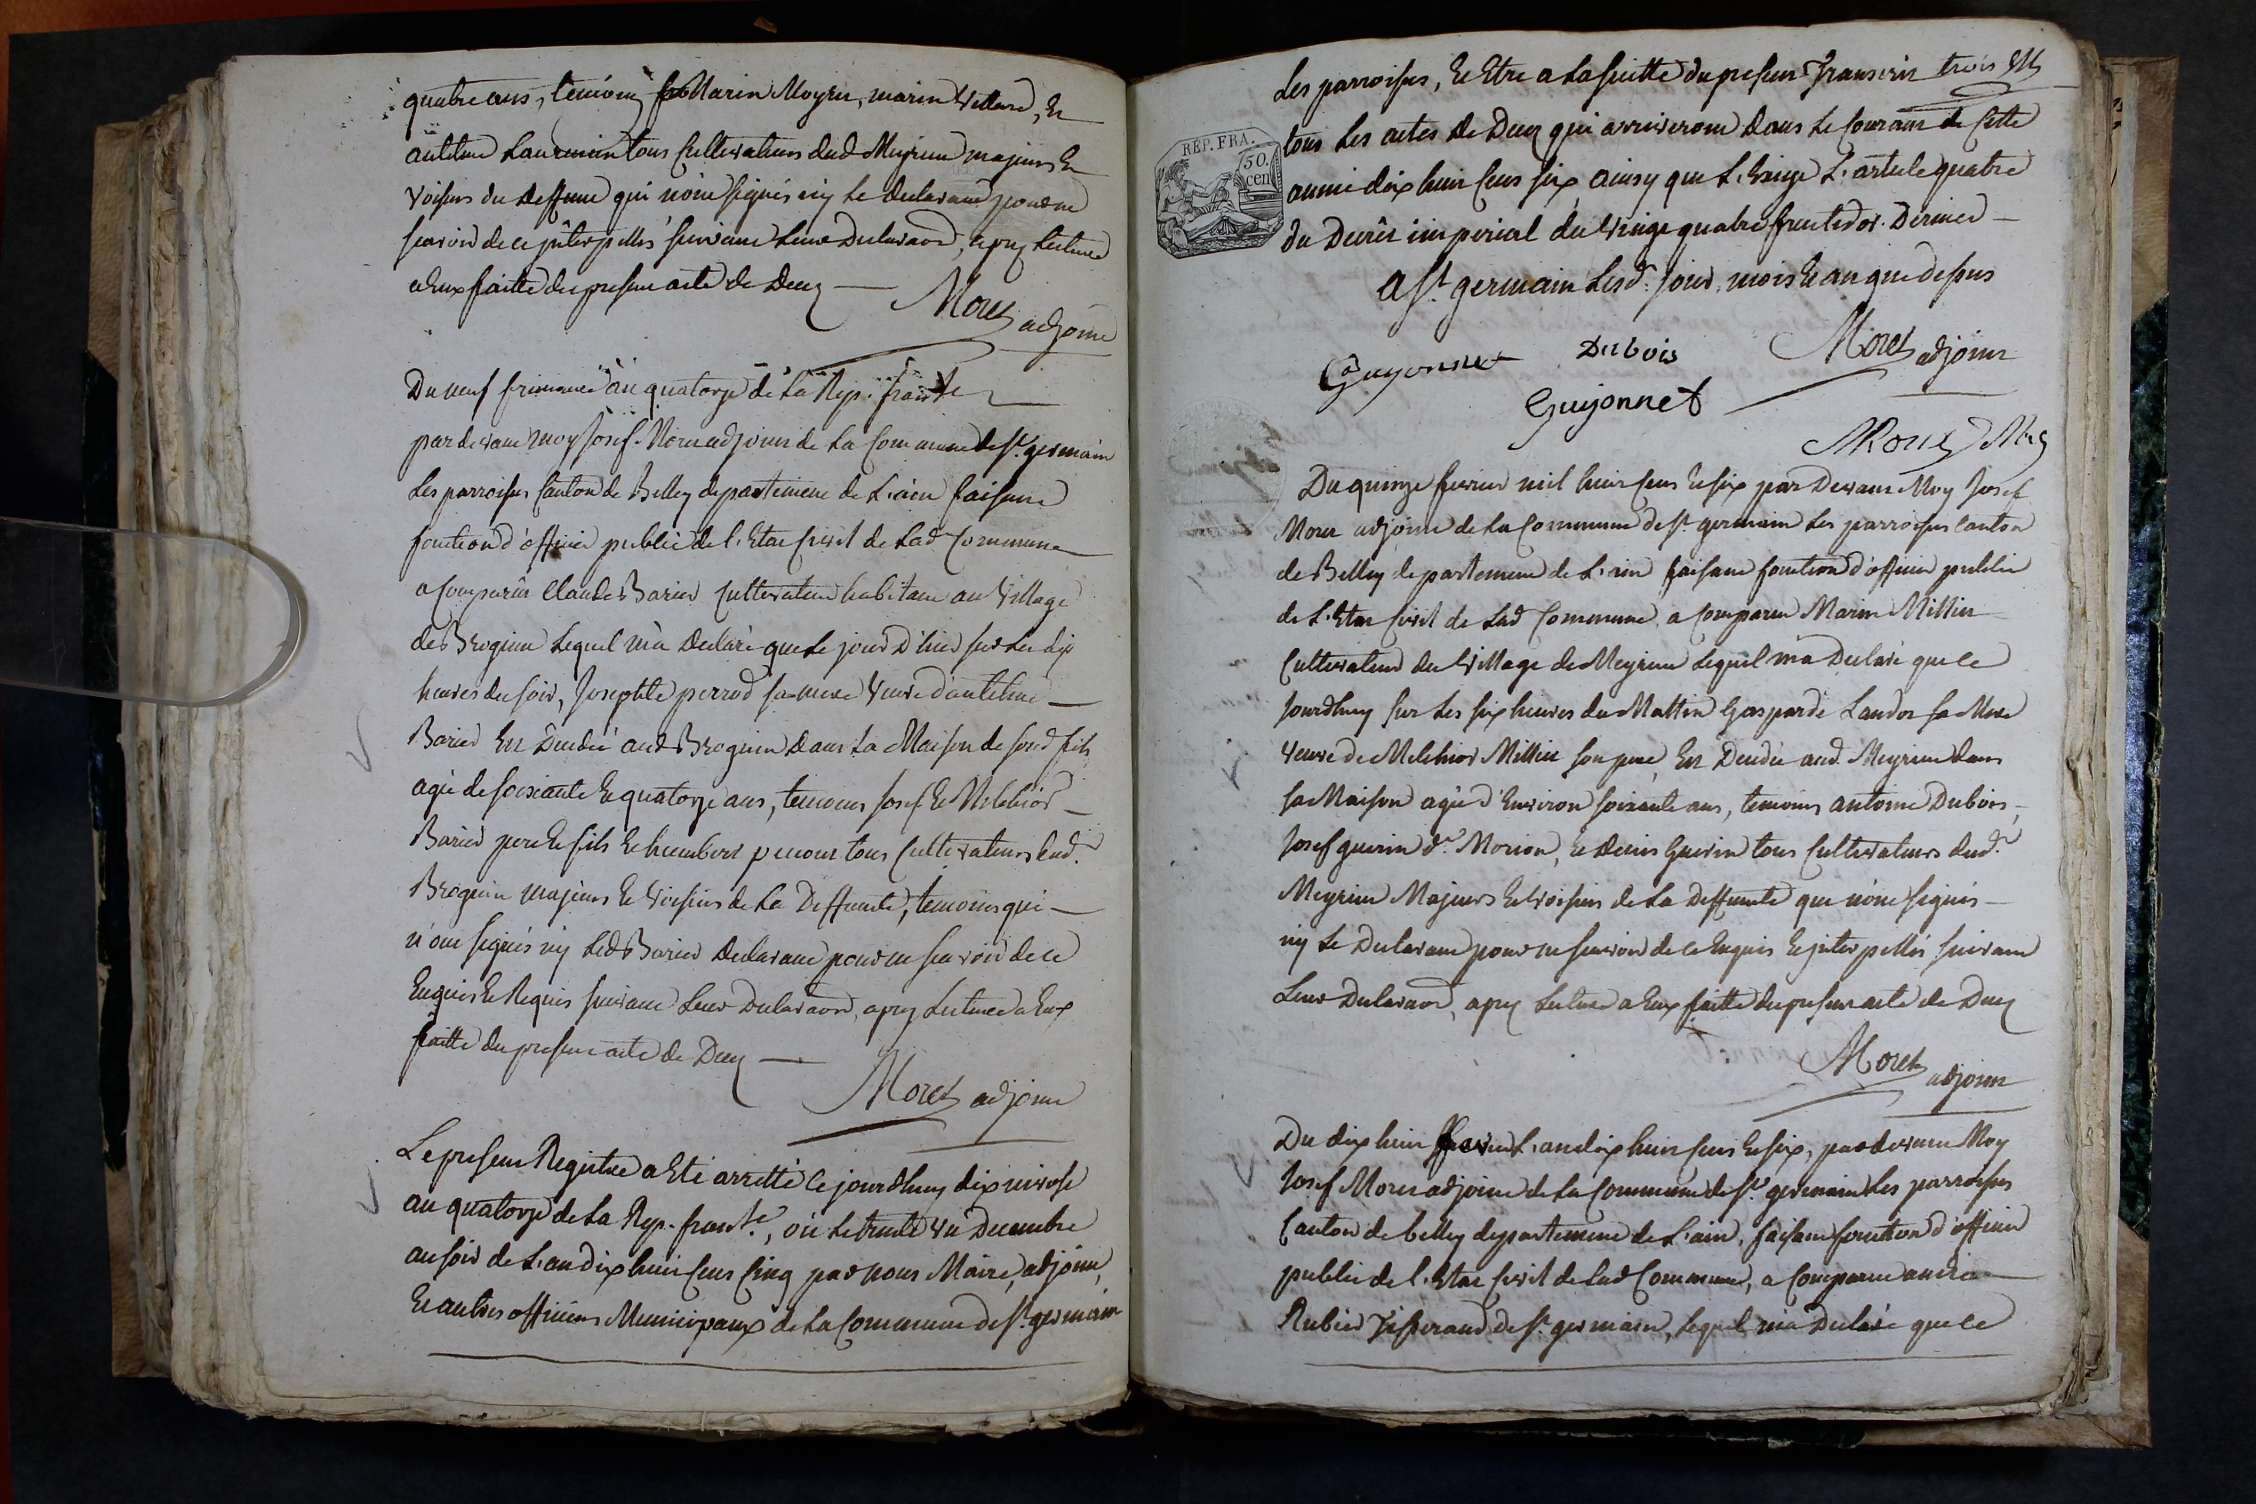 quatre ans, temoins Marin Moyret, marin Villard, Et
antelme Laurencin tous Cultivateurs dud. Meyrieu majeurs Et
voisins du deffunt qui n'ont signés ny le declarant pour ne
scavoir de ce jnterpellés suivant leur declaraon, apres lecture
a Eux faitte du present acte de Deces
Moret adjoint
Du neuf frimaire an quatorze de la Rep. franse
par devant moy Josef Moret adjoint de la Commune de St. germain
Les parroisses Canton de Belley departement de L'ain faisant
fonction d'officier public de l'Etat Civil de lad. Commune
a Comparu Claude Barier Cultivateur habitant au village
de Brognin Lequel m'a Declaré que le jour D'hier sur les dix
heures du soir, Josephte perrod sa mere veuve d'antelme
Barier Est Decedée aud. Brognin Dans la Maison de sond. fils
agée de soixante Et quatorze ans, temoins Josef Et Melchior
Barier pere Et fils Et humbert tous Cultivateurs dud.
Brognin majeurs Et voisins de la Deffunte, temoins qui
n'ont signés ny led. Barier Declarant pour ne scavoir de ce
Enquis Et Requis suivant Leur Declaraon, apres Lecture a Eux
faitte du present acte de Deces
Moret adjoint
Le present Registre a Eté arretté ce jourdhuy dix nivose
an quatorze de la Rep. franse., ou le trente un Decembre
au soir de L'an dix huit Cens Cinq par nous Maire, adjoint,
Et autres officiers Municipaux de la Commune de St. germain
Les parroisses, Et Etre a la suitte du present Transcrit trois
REP. FRA.
50.
cen
tous Les actes de Deces qui arriveront Dans le Courant de Cette
année dix huit Cens six ainsy que L'Exige L'article quatre
du Decret imperial du vingt quatre fructidor. Dernier
a St. germain Lesd. jour, mois Et an que dessus
Guyonnet Dubois Moret adjoint
Guyonnet
Du quinze fevrier mil huit Cens Et six par Devant Moy Josef
Moret adjoint de la Commune de St. germain Les parroisses Canton
de Belley departement de L'ain faisant fonction d'officier public
de L'Etat Civil de lad. Commune a Comparu Marin Millin
Cultivateur du village de Meyrieu Lequel m'a Declaré que ce
jourdhuy sur les six heures du Mattin Gasparde Landos sa Mere
veuve de Melchior Millin son pere, Est Decedée aud. Meyrieu dans
sa Maison agée d'Environ soixante ans, temoins antoine Dubois,
Josef guerin dt. Morion, Et Denis Guerin tous Cultivateurs dud.
Meyrieu Majeurs Et voisins de la Deffunte qui n'ont signés
ny le Declarant pour ne scavoir de ce Enquis Et jnterpellés suivant
Leur Declaraon, apres Lecture a Eux faitte du present acte de Deces
Moret adjoint
Du dix huit fevrier L'an dix huit Cens Et six, par devant Moy
Josef Moret adjoint de la Commune de St. germain Les parroisses
Canton de belley departement de L'ain, faisant fonction d'officier
public de l'Etat Civil de lad. Commune, a Comparu
Rubier Tisserand de St. germain, Lequel m'a Declaré que ce